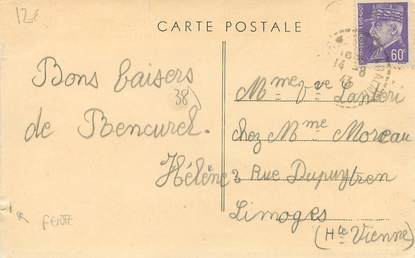 12€
CARTE POSTALE
60c
Bons baisers
38)
de Bencurel.
Hélène
Mme Vve
chez Mme Moreau
2 Rue Dupuytren
Limoges
(Hte Vienne)
FENTE